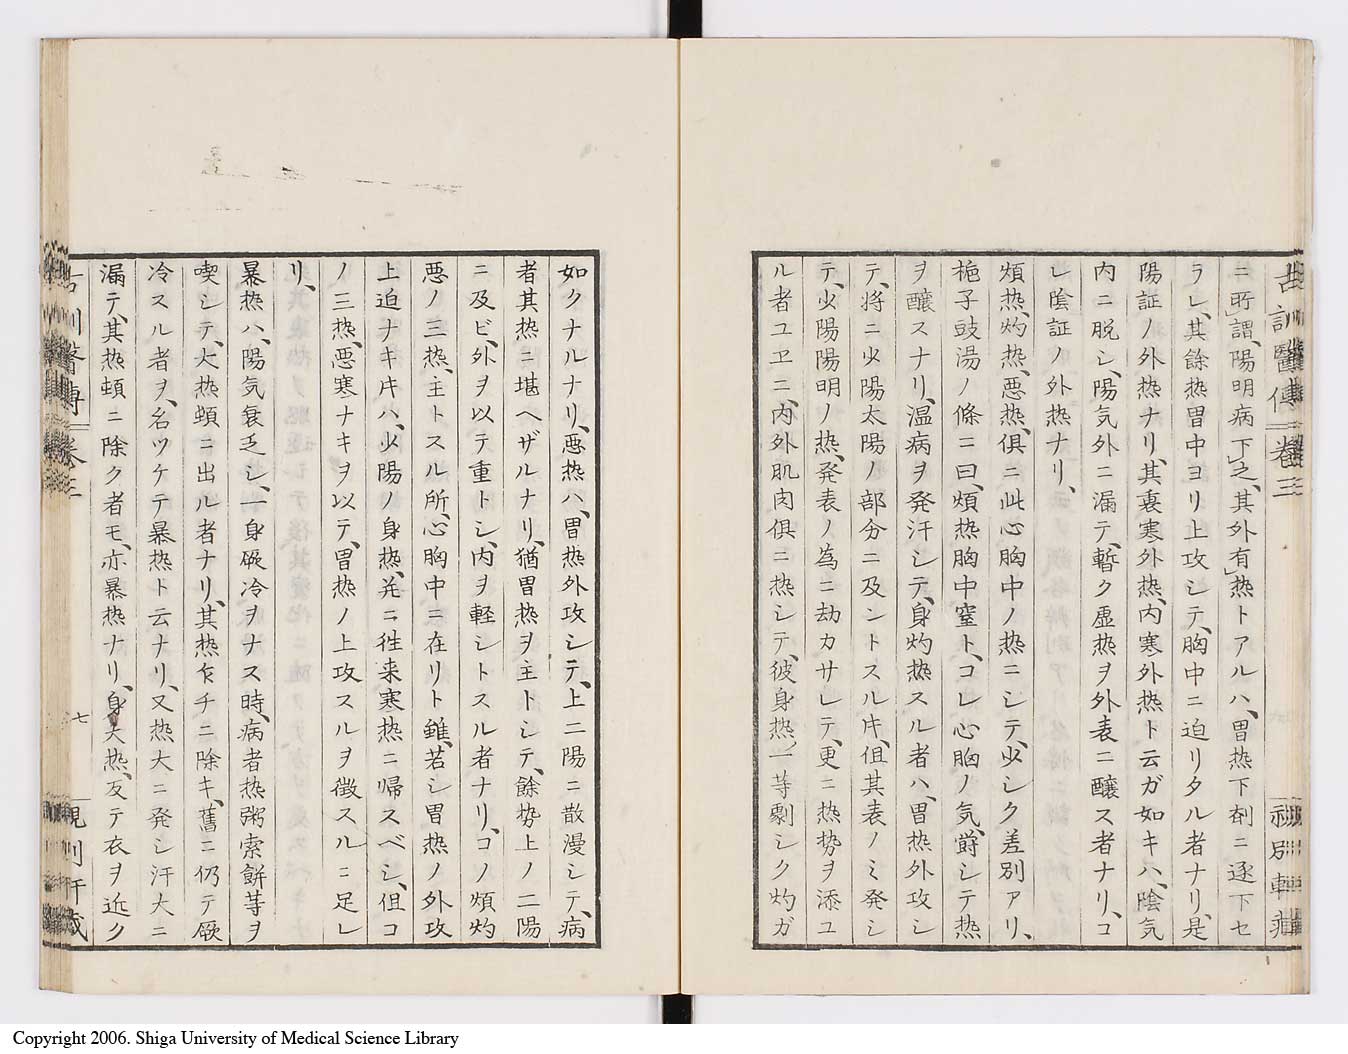 古訓醫傳 卷三
ニ所謂、陽明病下之、其外有熱トアルハ、胃熱下剤ニ逐下セ
ラレ、其餘熱胃中ヨリ上攻シテ、胸中ニ迫リタル者ナリ、是
陽証ノ外熱ナリ、其裏寒外熱、内寒外熱ト云ガ如キハ、陰気
内ニ脱シ、陽気外ニ漏テ、暫ク虚熱ヲ外表ニ醸ス者ナリ、コ
レ陰証ノ外熱ナリ、
煩熱、灼熱、悪熱、俱ニ此心胸中ノ熱ニシテ、少シク差別アリ、
梔子豉湯ノ條ニ曰、煩熱胸中窒ト、コレ心胸ノ気、欝シテ熱
ヲ醸スナリ、温病ヲ発汗シテ、身灼熱スル者ハ、胃熱外攻シ
テ、将ニ少陽太陽ノ部分ニ及ントスル𪜈、但其表ノミ発シ
テ、少陽陽明ノ熱、発表ノ為ニ劫カサレテ、更ニ熱勢ヲ添ユ
ル者ユヱニ、内外肌肉俱ニ熱シテ、彼身熱ノ一等劇シク灼ガ
如クナルナリ、悪熱ハ、胃熱外攻シテ、上二陽ニ散漫シテ、病
者其熱ニ堪ヘザルナリ、猶胃熱ヲ主トシテ、餘勢上ノ二陽
ニ及ビ、外ヲ以テ重トシ、内ヲ軽シトスル者ナリ、コノ煩灼
悪ノ三熱、主トスル所、心胸中ニ在リト雖、若シ胃熱ノ外攻
上迫ナキ𪜈ハ、少陽ノ身熱、并ニ往来寒熱ニ帰スベシ、但コ
ノ三熱、悪寒ナキヲ以テ、胃熱ノ上攻スルヲ徴スルニ足レ
リ、
暴熱ハ、陽気衰乏シ、一身厥冷ヲナス時、病者熱粥索餅等ヲ
喫シテ、大熱頓ニ出ル者ナリ、其熱乍チニ除キ、舊ニ仍テ厥
冷スル者ヲ、名ツケテ暴熱ト云ナリ、又熱大ニ発シ汗大ニ
漏テ、其熱頓ニ除ク者モ、亦暴熱ナリ、身大熱、反テ衣ヲ近ク
卷三
七